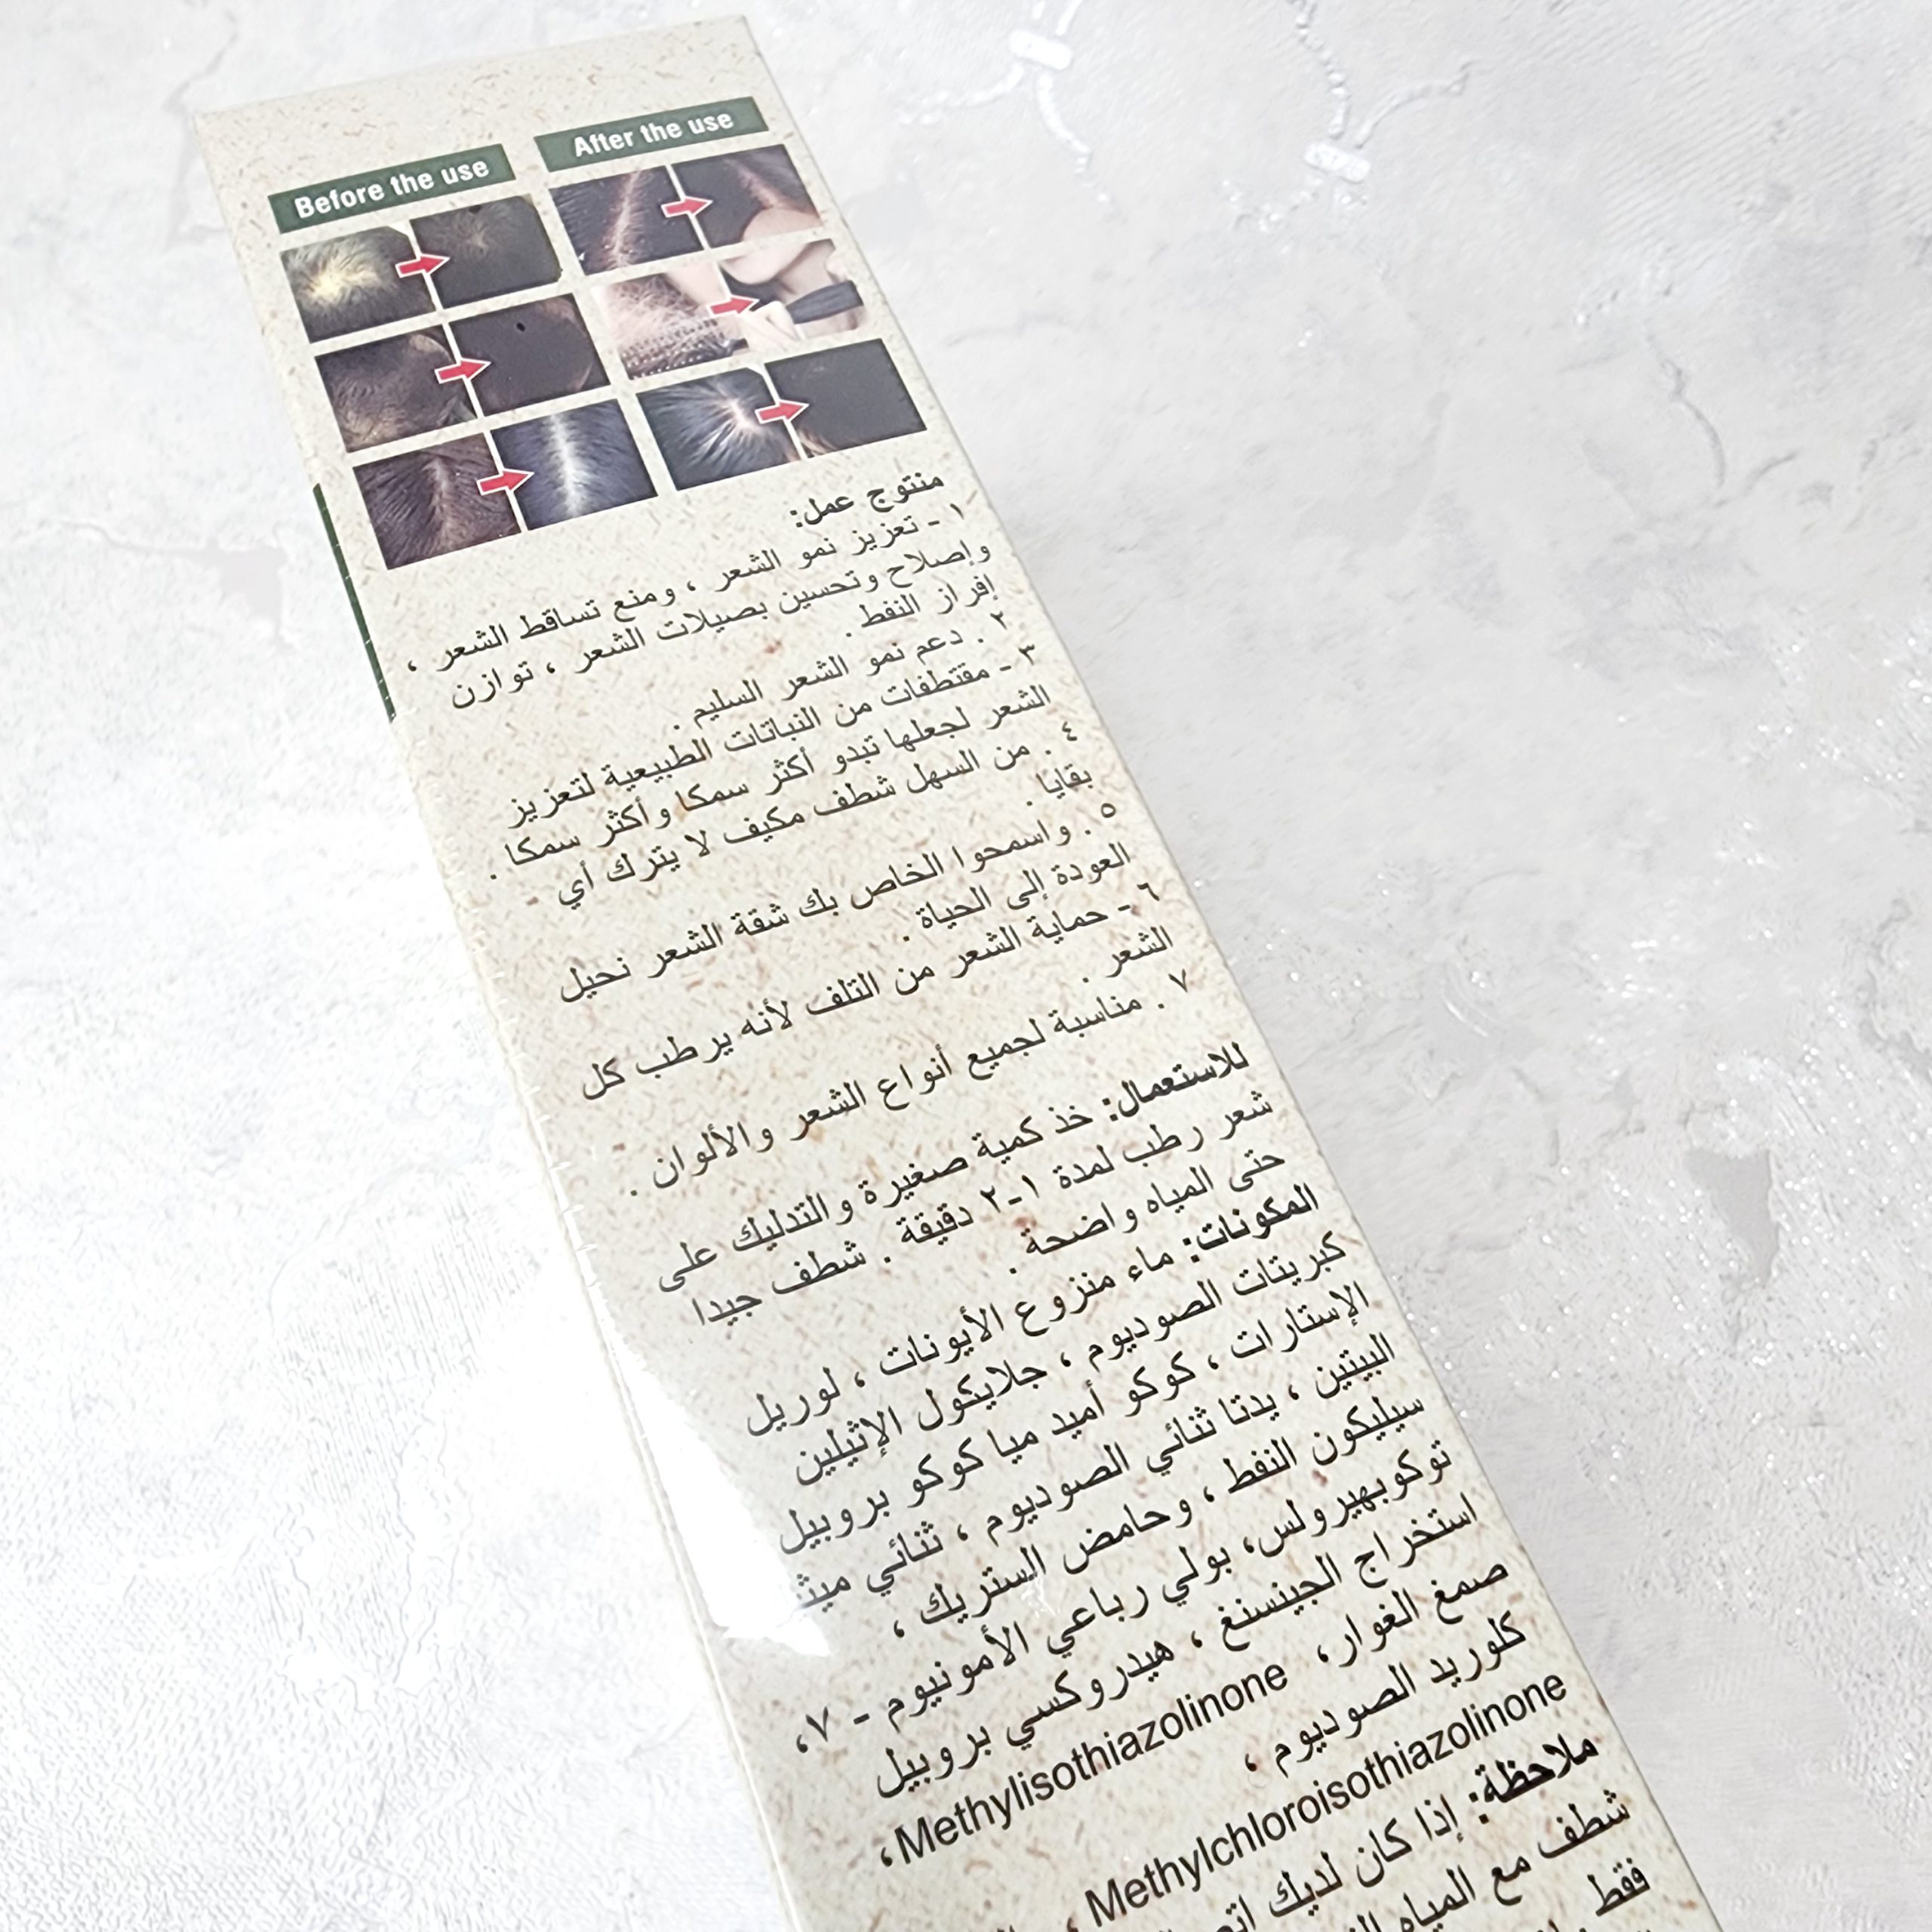 Before the use
After the use
منتوج عمل:
١ - تعزيز نمو الشعر ، ومنع تساقط الشعر ،
وإصلاح وتحسين بصيلات الشعر ، توازن
إفراز النفط .
٢ . دعم نمو الشعر السليم .
٣ - مقتطفات من النباتات الطبيعية لتعزيز
الشعر لجعلها تبدو أكثر سمكا وأكثر سمكا .
٤ . من السهل شطف مكيف لا يترك أي
بقايا .
٥ . واسمحوا الخاص بك شقة الشعر نحيل
العودة إلى الحياة .
٦ - حماية الشعر من التلف لأنه يرطب كل
الشعر .
٧ . مناسبة لجميع أنواع الشعر والألوان .
للاستعمال: خذ كمية صغيرة والتدليك على
شعر رطب لمدة ١-٢ دقيقة . شطف جيدا
حتى المياه واضحة .
المكونات: ماء منزوع الأيونات ، لوريل
كبريتات الصوديوم ، جلايكول الإثيلين
الإستارات ، كوكو أميد ميا كوكو بروبيل
البيتين ، يدتا ثنائي الصوديوم ، ثنائي
سيليكون النفط ، وحامض الستريك ،
توكوبهيرولس، بولي رباعي الأمونيوم - ٧،
استخراج الجينسنغ ، هيدروكسي بروبيل
صمغ الغوار، Methylisothiazolinone،
كلوريد الصوديوم ،
Methylchloroisothiazolinone ،
ملاحظة: إذا كان لديك
شطف مع المياه
فقط